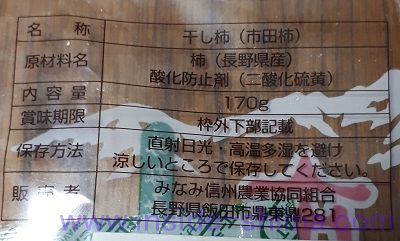 名称 干し柿（市田柿）
原材料名 柿（長野県産）
酸化防止剤（二酸化硫黄）
内容量 170g
賞味期限 枠外下部記載
保存方法 直射日光・高温多湿を避け
涼しいところで保存してください。
販売者 みなみ信州農業協同組合
長野県飯田市鼎東鼎281